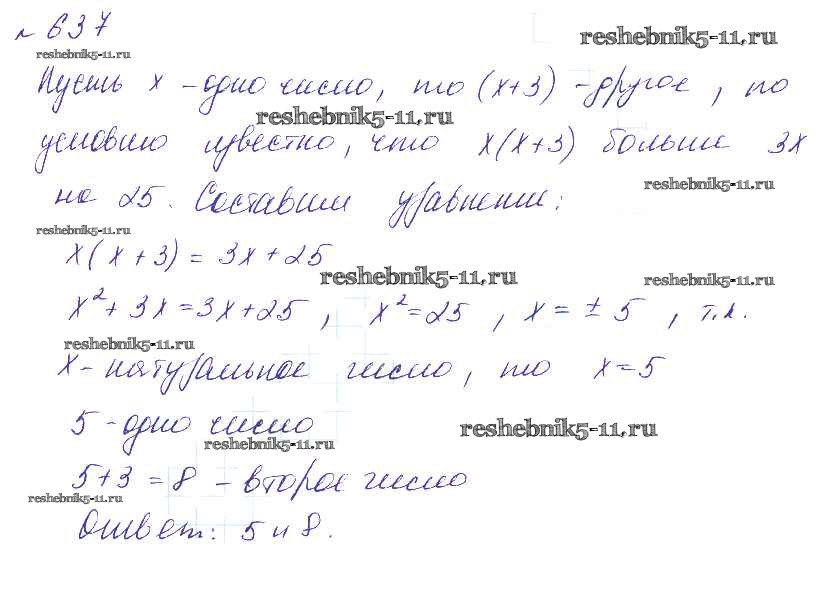 № 637
reshebnik5-11.ru
reshebnik5-11.ru
Пусть x - одно число, то (x+3) - другое, по
reshebnik5-11.ru
условию известно, что x(x+3) больше 3x
reshebnik5-11.ru
на 25. Составим уравнение:
reshebnik5-11.ru
x(x+3) = 3x+25
reshebnik5-11.ru
reshebnik5-11.ru
x²+3x=3x+25, x²=25, x=±5, т.к.
reshebnik5-11.ru
x - натуральное число, то x=5
5 - одно число
reshebnik5-11.ru
reshebnik5-11.ru
5+3=8 - второе число
reshebnik5-11.ru
Ответ: 5 и 8.